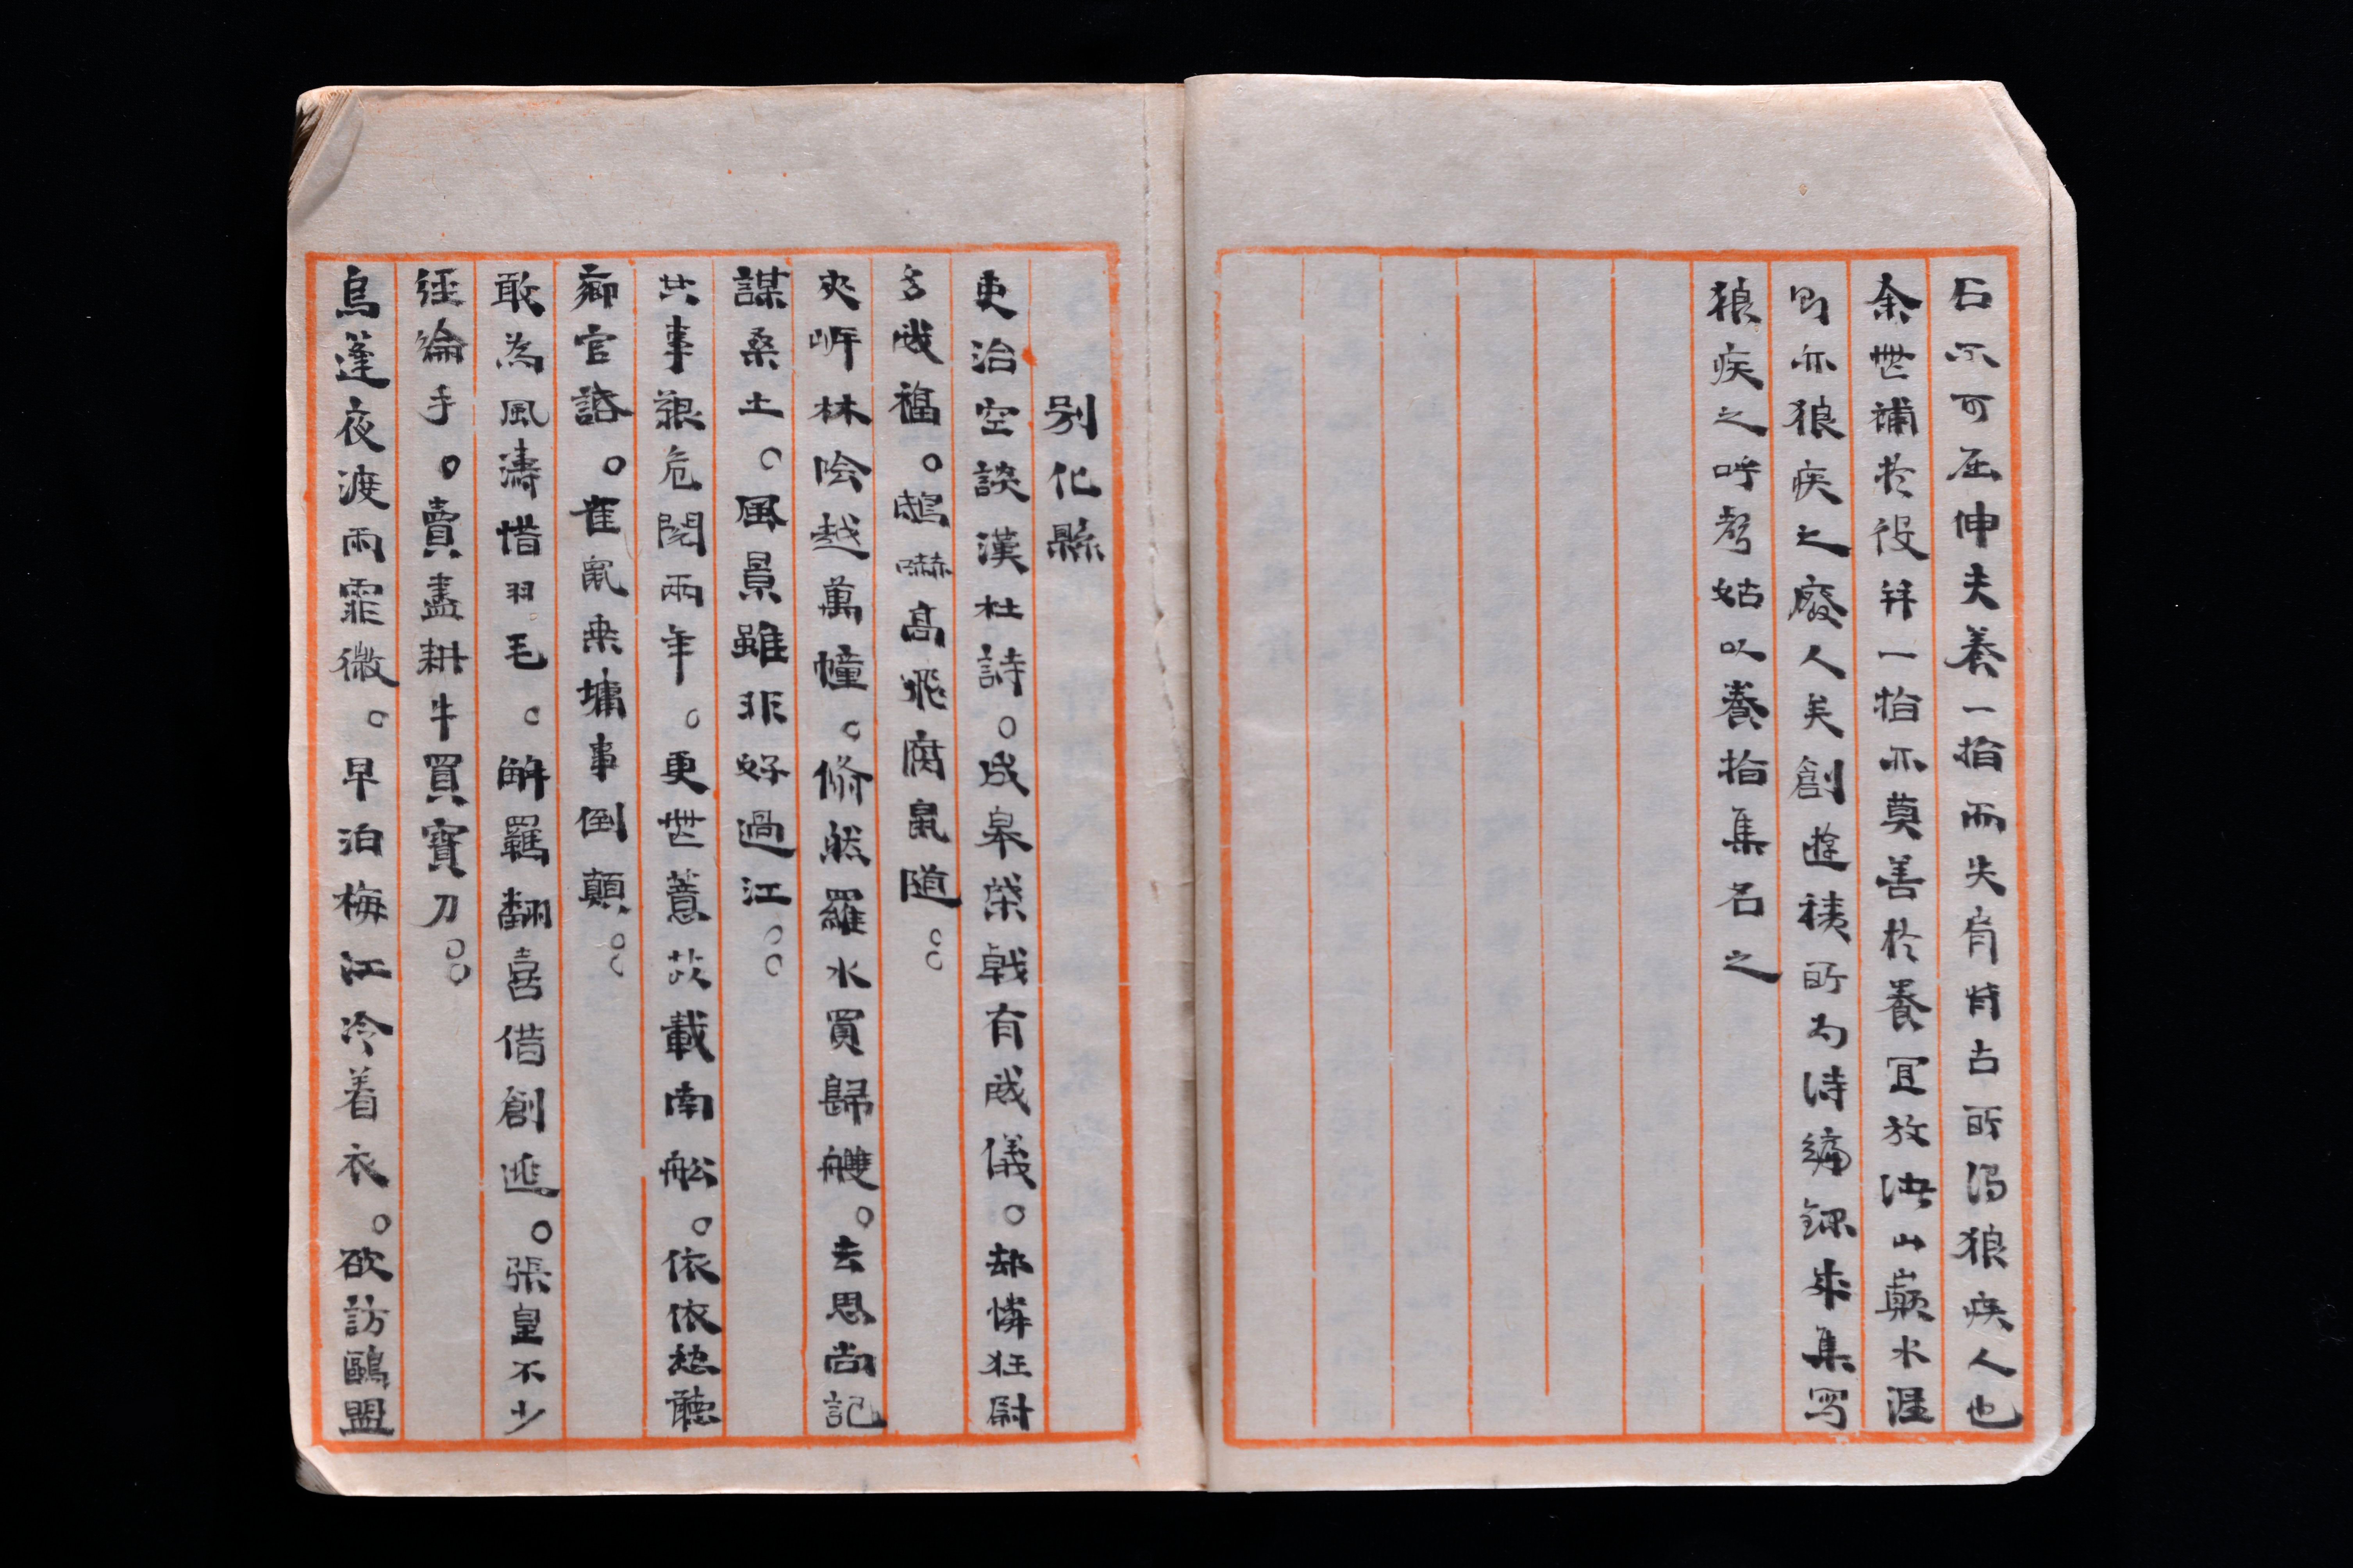 石不可屈伸夫養一指而失肩背古所謂狼疾人也
余無補於役并一指亦莫善於養宜放山巔水涯
即亦狼疾之廢人矣創遊所為詩編錄來集寫
狼疾之呼聲姑以養指集名之
別化縣
吏治空談漢杜詩。成皋棨戟有威儀。却憐狂尉
多威福。鴟嚇高飛腐鼠隨。。
夾岍林陰越萬幢。翛然羅水買歸艭。去思尚記
謀桑土。風景雖非好過江。。
共事艱危閱兩年。更無薏苡載南船。依依愁聽
鄉官語。雀鼠乘墉事倒顛。。
敢為風濤惜羽毛。解羈翻喜借創逃。張皇不少
經綸手。賣盡耕牛買寶刀。。
烏蓬夜渡雨霏微。早泊梅江冷着衣。欲訪鷗盟